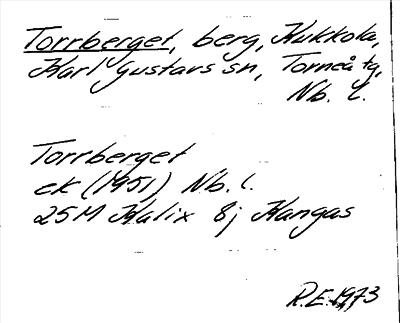 Torrberget, berg, Kukkola,
Karl Gustavs sn, Torneå tg,
Nb. l.
Torrberget
ek (1951) Nb. l.
25M Kalix 8j Kangas
R.E. 1973